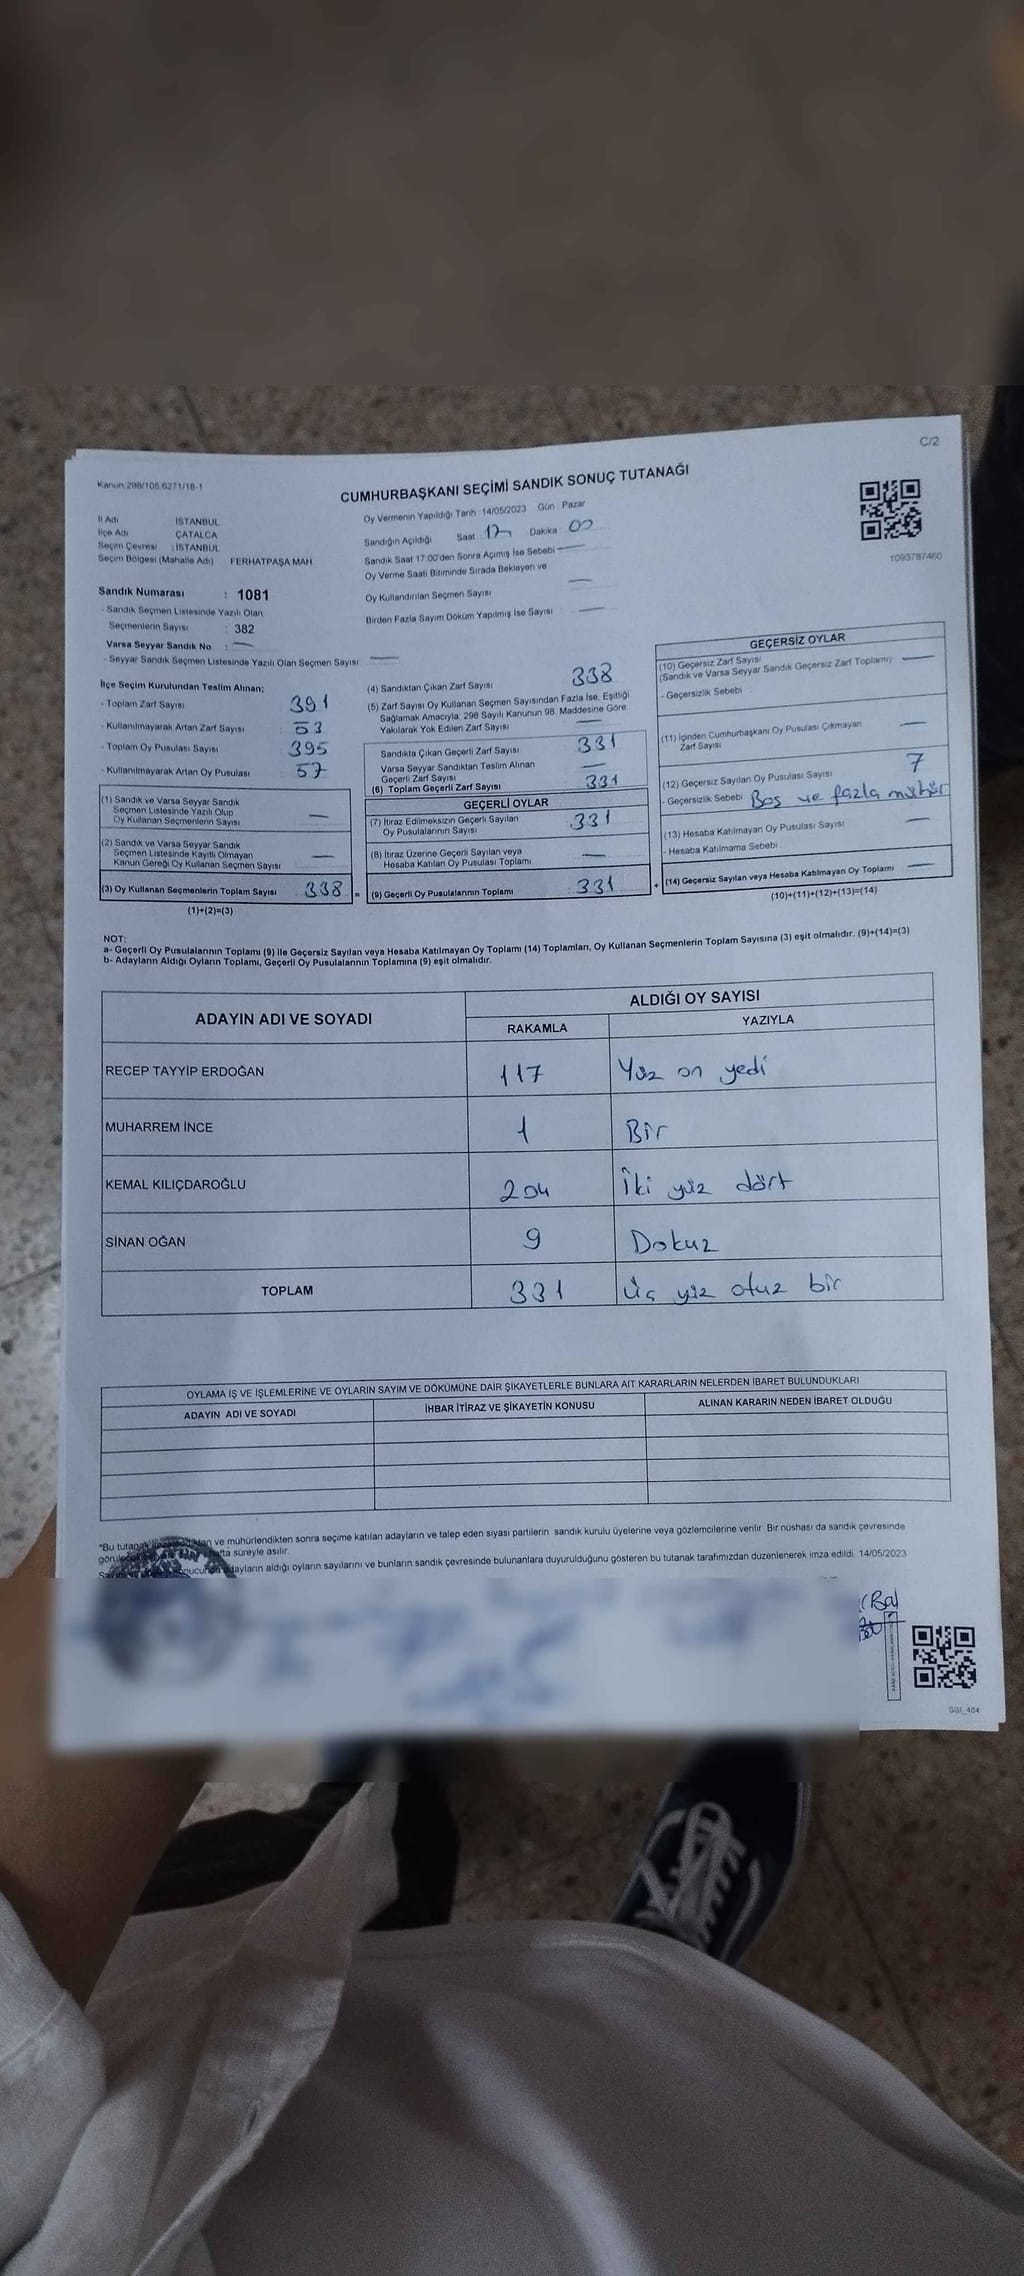 C/2
Kanun 298/105,6271/18-1
CUMHURBAŞKANI SEÇİMİ SANDIK SONUÇ TUTANAĞI
İl Adı İSTANBUL
İlçe Adı ÇATALCA
Seçim Çevresi : İSTANBUL
Seçim Bölgesi (Mahalle Adı) FERHATPAŞA MAH
Oy Vermenin Yapıldığı Tarih 14/05/2023 Gün Pazar
Sandığın Açıldığı Saat 17 Dakika 00
Sandık Saat 17:00'den Sonra Açımış İse Sebebi —
Oy Verme Saati Bitiminde Sırada Bekleyen ve
Oy Kullandırılan Seçmen Sayısı —
Birden Fazla Sayım Döküm Yapılmış İse Sayısı : —
1093787460
Sandık Numarası : 1081
- Sandık Seçmen Listesinde Yazılı Olan
Seçmenlerin Sayısı : 382
Varsa Seyyar Sandık No : —
- Seyyar Sandık Seçmen Listesinde Yazılı Olan Seçmen Sayısı : —
İlçe Seçim Kurulundan Teslim Alınan;
- Toplam Zarf Sayısı : 391
- Kullanılmayarak Artan Zarf Sayısı : 53
- Toplam Oy Pusulası Sayısı : 395
- Kullanılmayarak Artan Oy Pusulası : 57
(1) Sandık ve Varsa Seyyar Sandık
Seçmen Listesinde Yazılı Olup
Oy Kullanan Seçmenlerin Sayısı : —
(2) Sandık ve Varsa Seyyar Sandık
Seçmen Listesinde Kayıtlı Olmayan
Kanun Gereği Oy Kullanan Seçmen Sayısı : —
(3) Oy Kullanan Seçmenlerin Toplam Sayısı : 338 =
(1)+(2)=(3)
(4) Sandıktan Çıkan Zarf Sayısı : 338
(5) Zarf Sayısı Oy Kullanan Seçmen Sayısından Fazla İse, Eşitliği
Sağlamak Amacıyla, 298 Sayılı Kanunun 98. Maddesine Göre
Yakılarak Yok Edilen Zarf Sayısı : —
Sandıkta Çıkan Geçerli Zarf Sayısı : 331
Varsa Seyyar Sandıktan Teslim Alınan
Geçerli Zarf Sayısı : —
(6) Toplam Geçerli Zarf Sayısı : 331
GEÇERLİ OYLAR
(7) İtiraz Edilmeksizin Geçerli Sayılan
Oy Pusulalarının Sayısı : 331
(8) İtiraz Üzerine Geçerli Sayılan veya
Hesaba Katılan Oy Pusulası Toplamı : —
(9) Geçerli Oy Pusulalarının Toplamı : 331 +
GEÇERSİZ OYLAR
(10) Geçersiz Zarf Sayısı
(Sandık ve Varsa Seyyar Sandık Geçersiz Zarf Toplamı) : —
- Geçersizlik Sebebi :
(11) İçinden Cumhurbaşkanı Oy Pusulası Çıkmayan
Zarf Sayısı : —
(12) Geçersiz Sayılan Oy Pusulası Sayısı : 7
- Geçersizlik Sebebi : Boş ve fazla mühür
(13) Hesaba Katılmayan Oy Pusulası Sayısı : —
- Hesaba Katılmama Sebebi :
(14) Geçersiz Sayılan veya Hesaba Katılmayan Oy Toplamı : —
(10)+(11)+(12)+(13)=(14)
NOT:
a- Geçerli Oy Pusulalarının Toplamı (9) ile Geçersiz Sayılan veya Hesaba Katılmayan Oy Toplamı (14) Toplamları, Oy Kullanan Seçmenlerin Toplam Sayısına (3) eşit olmalıdır. (9)+(14)=(3)
b- Adayların Aldığı Oyların Toplamı, Geçerli Oy Pusulalarının Toplamına (9) eşit olmalıdır.
ADAYIN ADI VE SOYADI
ALDIĞI OY SAYISI
RAKAMLA YAZIYLA
RECEP TAYYİP ERDOĞAN 117 Yüz on yedi
MUHARREM İNCE 1 Bir
KEMAL KILIÇDAROĞLU 204 İki yüz dört
SİNAN OĞAN 9 Dokuz
TOPLAM 331 Üç yüz otuz bir
OYLAMA İŞ VE İŞLEMLERİNE VE OYLARIN SAYIM VE DÖKÜMÜNE DAİR ŞİKAYETLERLE BUNLARA AİT KARARLARIN NELERDEN İBARET BULUNDUKLARI
ADAYIN ADI VE SOYADI İHBAR İTİRAZ VE ŞİKAYETİN KONUSU ALINAN KARARIN NEDEN İBARET OLDUĞU
*Bu tutanak ve mühürlendikten sonra seçime katılan adayların ve talep eden siyasi partilerin sandık kurulu üyelerine veya gözlemcilerine verilir. Bir nüshası da sandık çevresinde
hafta süreyle asılır.
adayların aldığı oyların sayılarını ve bunların sandık çevresinde bulunanlara duyurulduğunu gösteren bu tutanak tarafımızdan düzenlenerek imza edildi. 14/05/2023
SGI_404